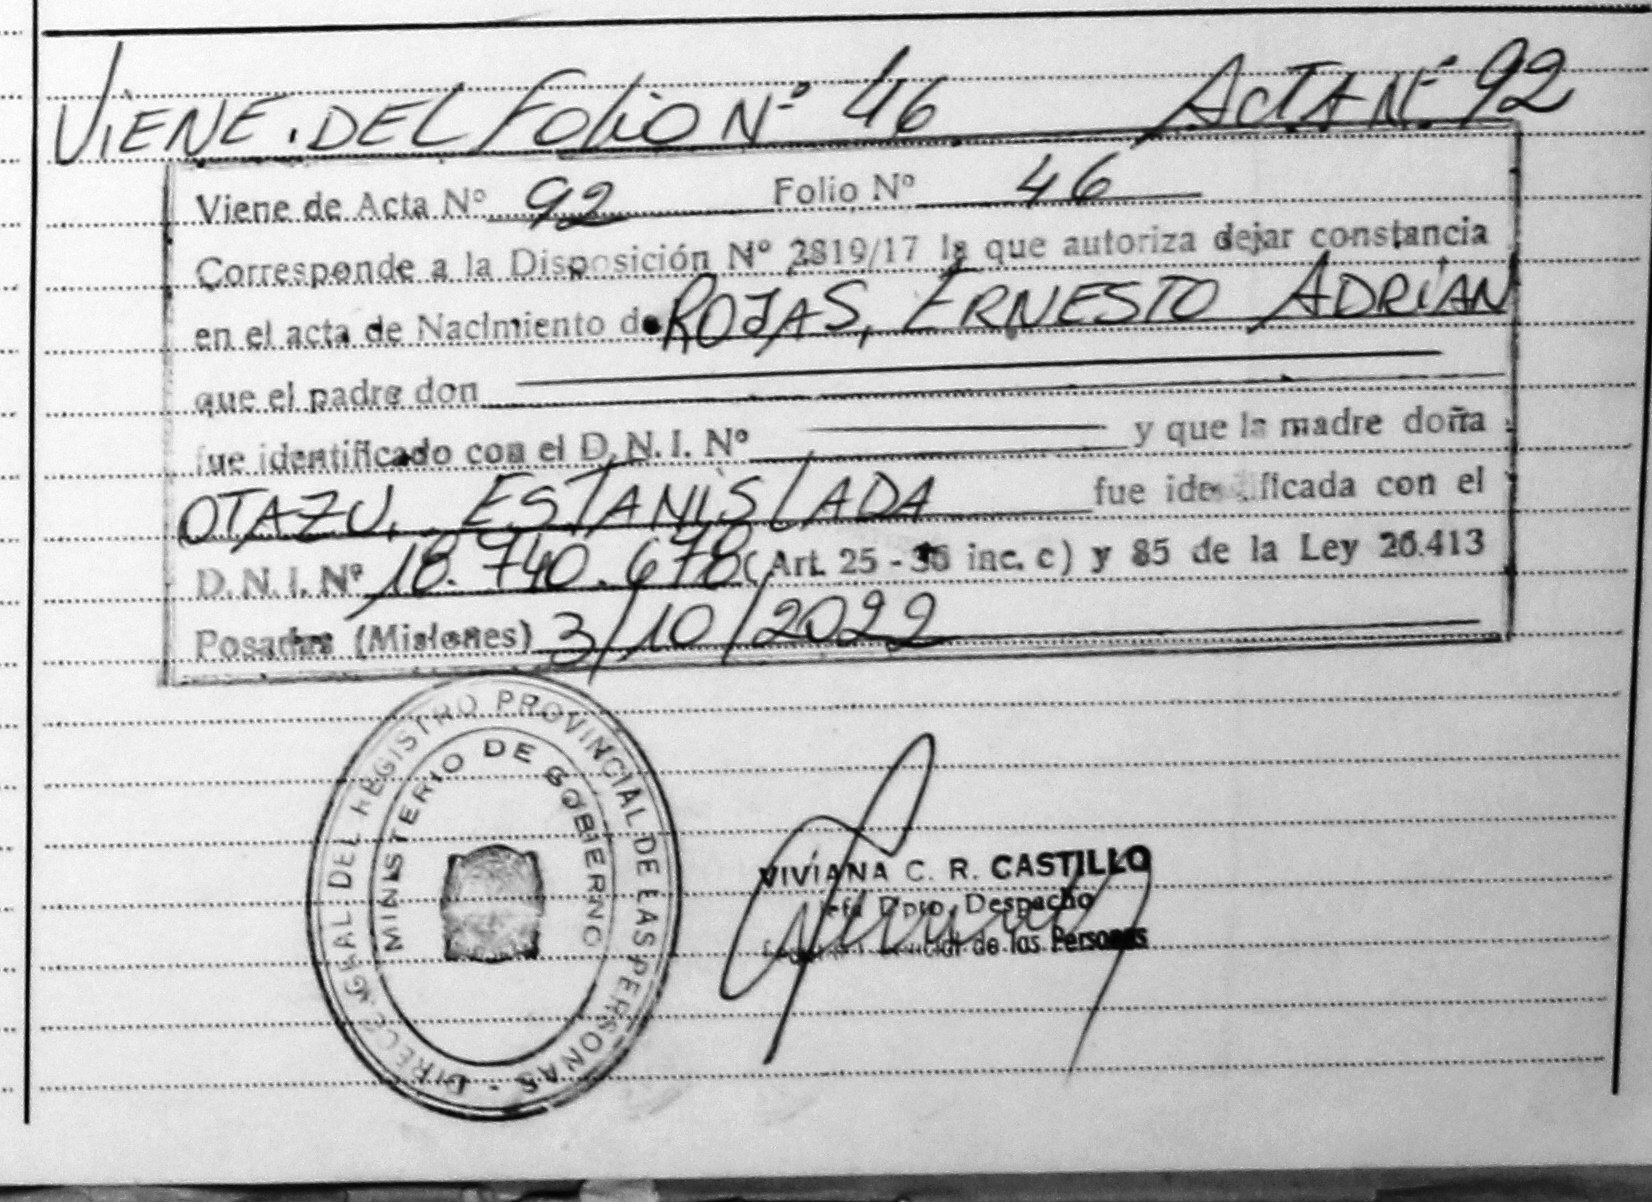 VIENE. DEL FOLIO Nº 46 ACTA Nº 92
Viene de Acta Nº 92 Folio Nº 46
Corresponde a la Disposición Nº 2819/17 la que autoriza dejar constancia
en el acta de Nacimiento de ROJAS, ERNESTO ADRIÁN
que el padre don
fue identificado con el D.N.I. Nº y que la madre doña
OTAZU, ESTANISLADA fue identificada con el
D.N.I. Nº 18.740.678 (Art. 25 - 35 inc. c) y 85 de la Ley 26.413
Posadas (Misiones) 3/10/2022
DIRECC. GRAL. DEL REGISTRO PROVINCIAL DE LAS PERSONAS -
MINISTERIO DE GOBIERNO
VIVIANA C. R. CASTILLO
Jefa Dpto. Despacho
de las Personas